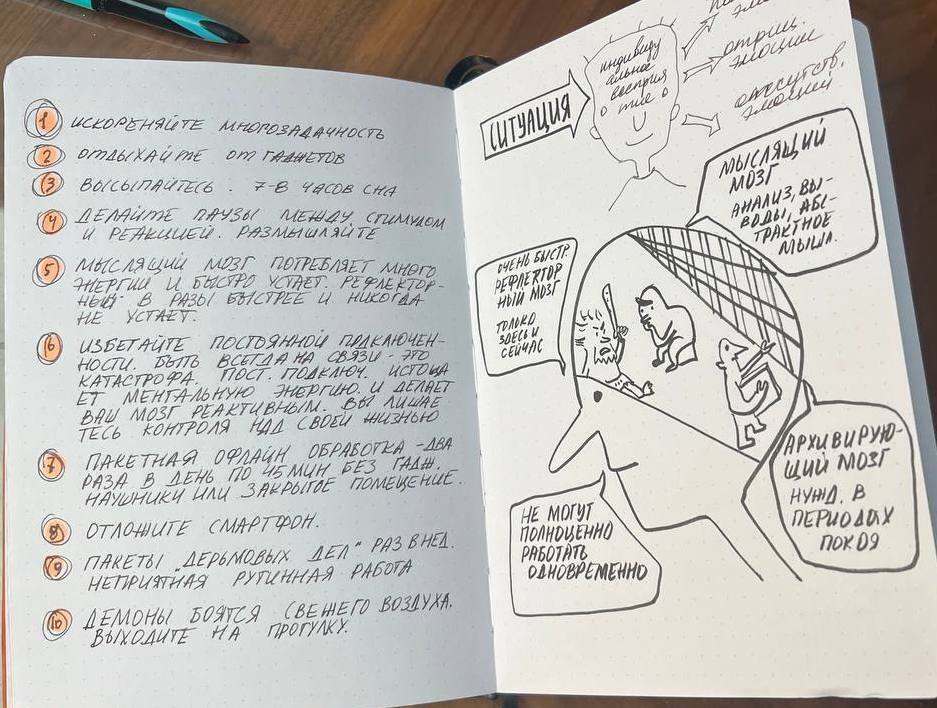 1 ИСКОРЕНЯЙТЕ МНОГОЗАДАЧНОСТЬ
2 ОТДЫХАЙТЕ ОТ ГАДЖЕТОВ
3 ВЫСЫПАЙТЕСЬ. 7-8 ЧАСОВ СНА
4 ДЕЛАЙТЕ ПАУЗЫ МЕЖДУ СТИМУЛОМ
И РЕАКЦИЕЙ. РАЗМЫШЛЯЙТЕ
5 МЫСЛЯЩИЙ МОЗГ ПОТРЕБЛЯЕТ МНОГО
ЭНЕРГИИ И БЫСТРО УСТАЕТ. РЕФЛЕКТОР-
НЫЙ В РАЗЫ БЫСТРЕЕ И НИКОГДА
НЕ УСТАЕТ.
6 ИЗБЕГАЙТЕ ПОСТОЯННОЙ ПОДКЛЮЧЕН-
НОСТИ. БЫТЬ ВСЕГДА НА СВЯЗИ - ЭТО
КАТАСТРОФА. ПОСТ. ПОДКЛЮЧ. ИСТОЩА
ЕТ МЕНТАЛЬНУЮ ЭНЕРГИЮ И ДЕЛАЕТ
ВАШ МОЗГ РЕАКТИВНЫМ. ВЫ ЛИШАЕ
ТЕСЬ КОНТРОЛЯ НАД СВОЕЙ ЖИЗНЬЮ
7 ПАКЕТНАЯ ОФЛАЙН ОБРАБОТКА - ДВА
РАЗА В ДЕНЬ ПО 45 МИН БЕЗ ГАДЖ.
НАУШНИКИ ИЛИ ЗАКРЫТОЕ ПОМЕЩЕНИЕ.
8 ОТЛОЖИТЕ СМАРТФОН.
9 ПАКЕТЫ „ДЕРЬМОВЫХ ДЕЛ" РАЗ В НЕД.
НЕПРИЯТНАЯ РУТИННАЯ РАБОТА
10 ДЕМОНЫ БОЯТСЯ СВЕЖЕГО ВОЗДУХА.
ВЫХОДИТЕ НА ПРОГУЛКУ.
СИТУАЦИЯ
индивиду
альное
восприя
тие
отриц.
эмоции
отсутств.
эмоций
МЫСЛЯЩИЙ
МОЗГ
АНАЛИЗ, ВЫ-
ВОДЫ, АБС
ТРАКТНОЕ
МЫШЛ.
ОЧЕНЬ БЫСТР.
РЕФЛЕКТОР
НЫЙ МОЗГ
ТОЛЬКО
ЗДЕСЬ И
СЕЙЧАС
АРХИВИРУЮ-
ЩИЙ МОЗГ
НУЖД. В
ПЕРИОДАХ
ПОКОЯ
НЕ МОГУТ
ПОЛНОЦЕННО
РАБОТАТЬ
ОДНОВРЕМЕННО